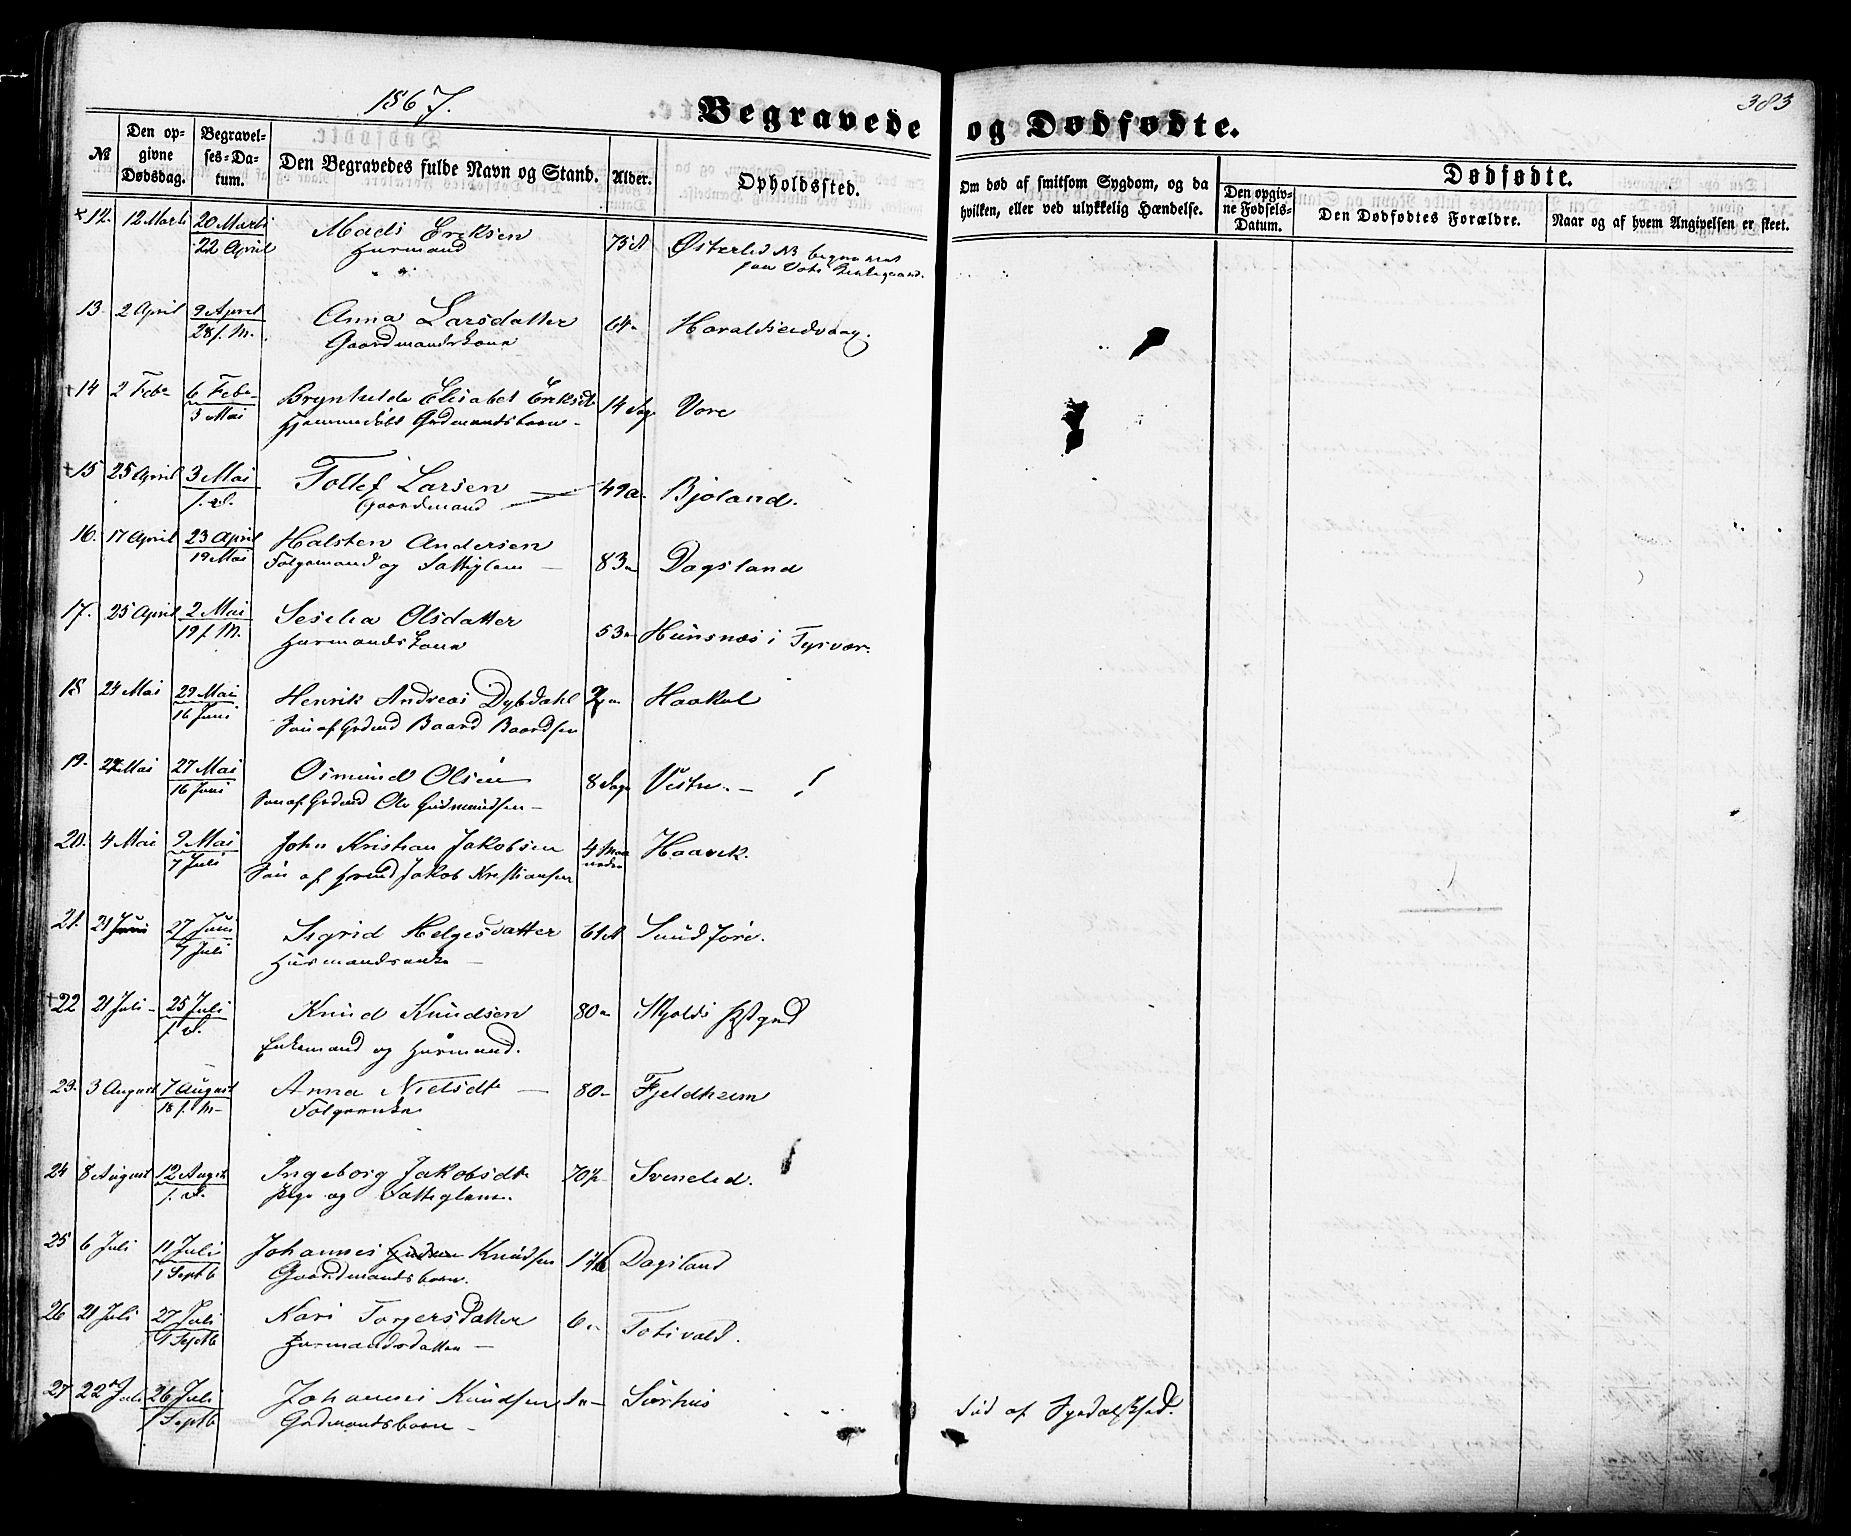 1867.
383
Begravede og Dødfødte.
№
Den opgivne Dødsdag.
Begravelses-Datum.
Den Begravedes fulde Navn og Stand.
Alder.
Opholdssted.
Om død af smitsom Sygdom, og da hvilken, eller ved ulykkelig Hændelse.
Dødfødte.
Den opgivne Fødsels-Datum.
Den Dødfødtes Forældre.
Naar og af hvem Angivelsen er skeet.
+12. 12 Marti 20 Marti Mads Eriksen 75 A Østerlid
22 April Huusmand
13. 2 April 9 April Anna Larsdatter 64 Haraldseidvaag.
28 f. M. Gaardmandskone
+14 2 Feb 6 Feb Brynhilde Elisabet Eriksdt 14 Dage Vore
3 Mai Hjemmedøbt Grdmandsbarn
+15 25 April 3 Mai Tollef Larsen 49 a Bjoland.
f. d. Gaardmand
16. 17 April 23 April Halsten Andersen 83 Dagsland
19 Mai Folgemand og Fattiglem
17. 25 April 2 Mai Seselia Olsdatter 53 Hunsnæs i Tysvær
19 f. M. Huusmandskone
18 24 Mai 29 Mai Henrik Andreas Dybdahl Haakul
16 Juni Søn af Grdmd Baard Baardsen
19. Mai 27 Mai Osmund Olsen 8 Dage Vestre
16 Juni Søn af Grdmd Ole Gudmundsen
20. 4 Mai 9 Mai John Kristian Jakobsen 4 Maaneder Haavik.
7 Juli Søn af Grdmd Jakob Kristiansen
21. 21 Juni 27 Juni Sigrid Helgesdatter 61 A Sundføre.
7 Juli Huusmandsenke
+22 21 Juli 25 Juli Knud Knudsen 80 Skjolds Pstgrd
f. d. Enkemand og Huusmand.
23. 3 August 7 August Anna Nielsdt 80 Fjeldheim
18 f. M Folgeenke
24 8 August 12 August Ingeborg Jakobsdt 70 Svendsd.
f. d. Pige og Fattiglem.
25 6 Juli 11 Juli Johannes Knudsen 1 Dagsland
1 Septb Gaardmandsbarn.
26 21 Juli 27 Juli Kari Torgersdatter 6 Totsvold.
1 Septb Huusmandsdatter
27 22 Juli 26 Juli Johannes Knudsen Sørhus
1 Septb Grdmandsbarn